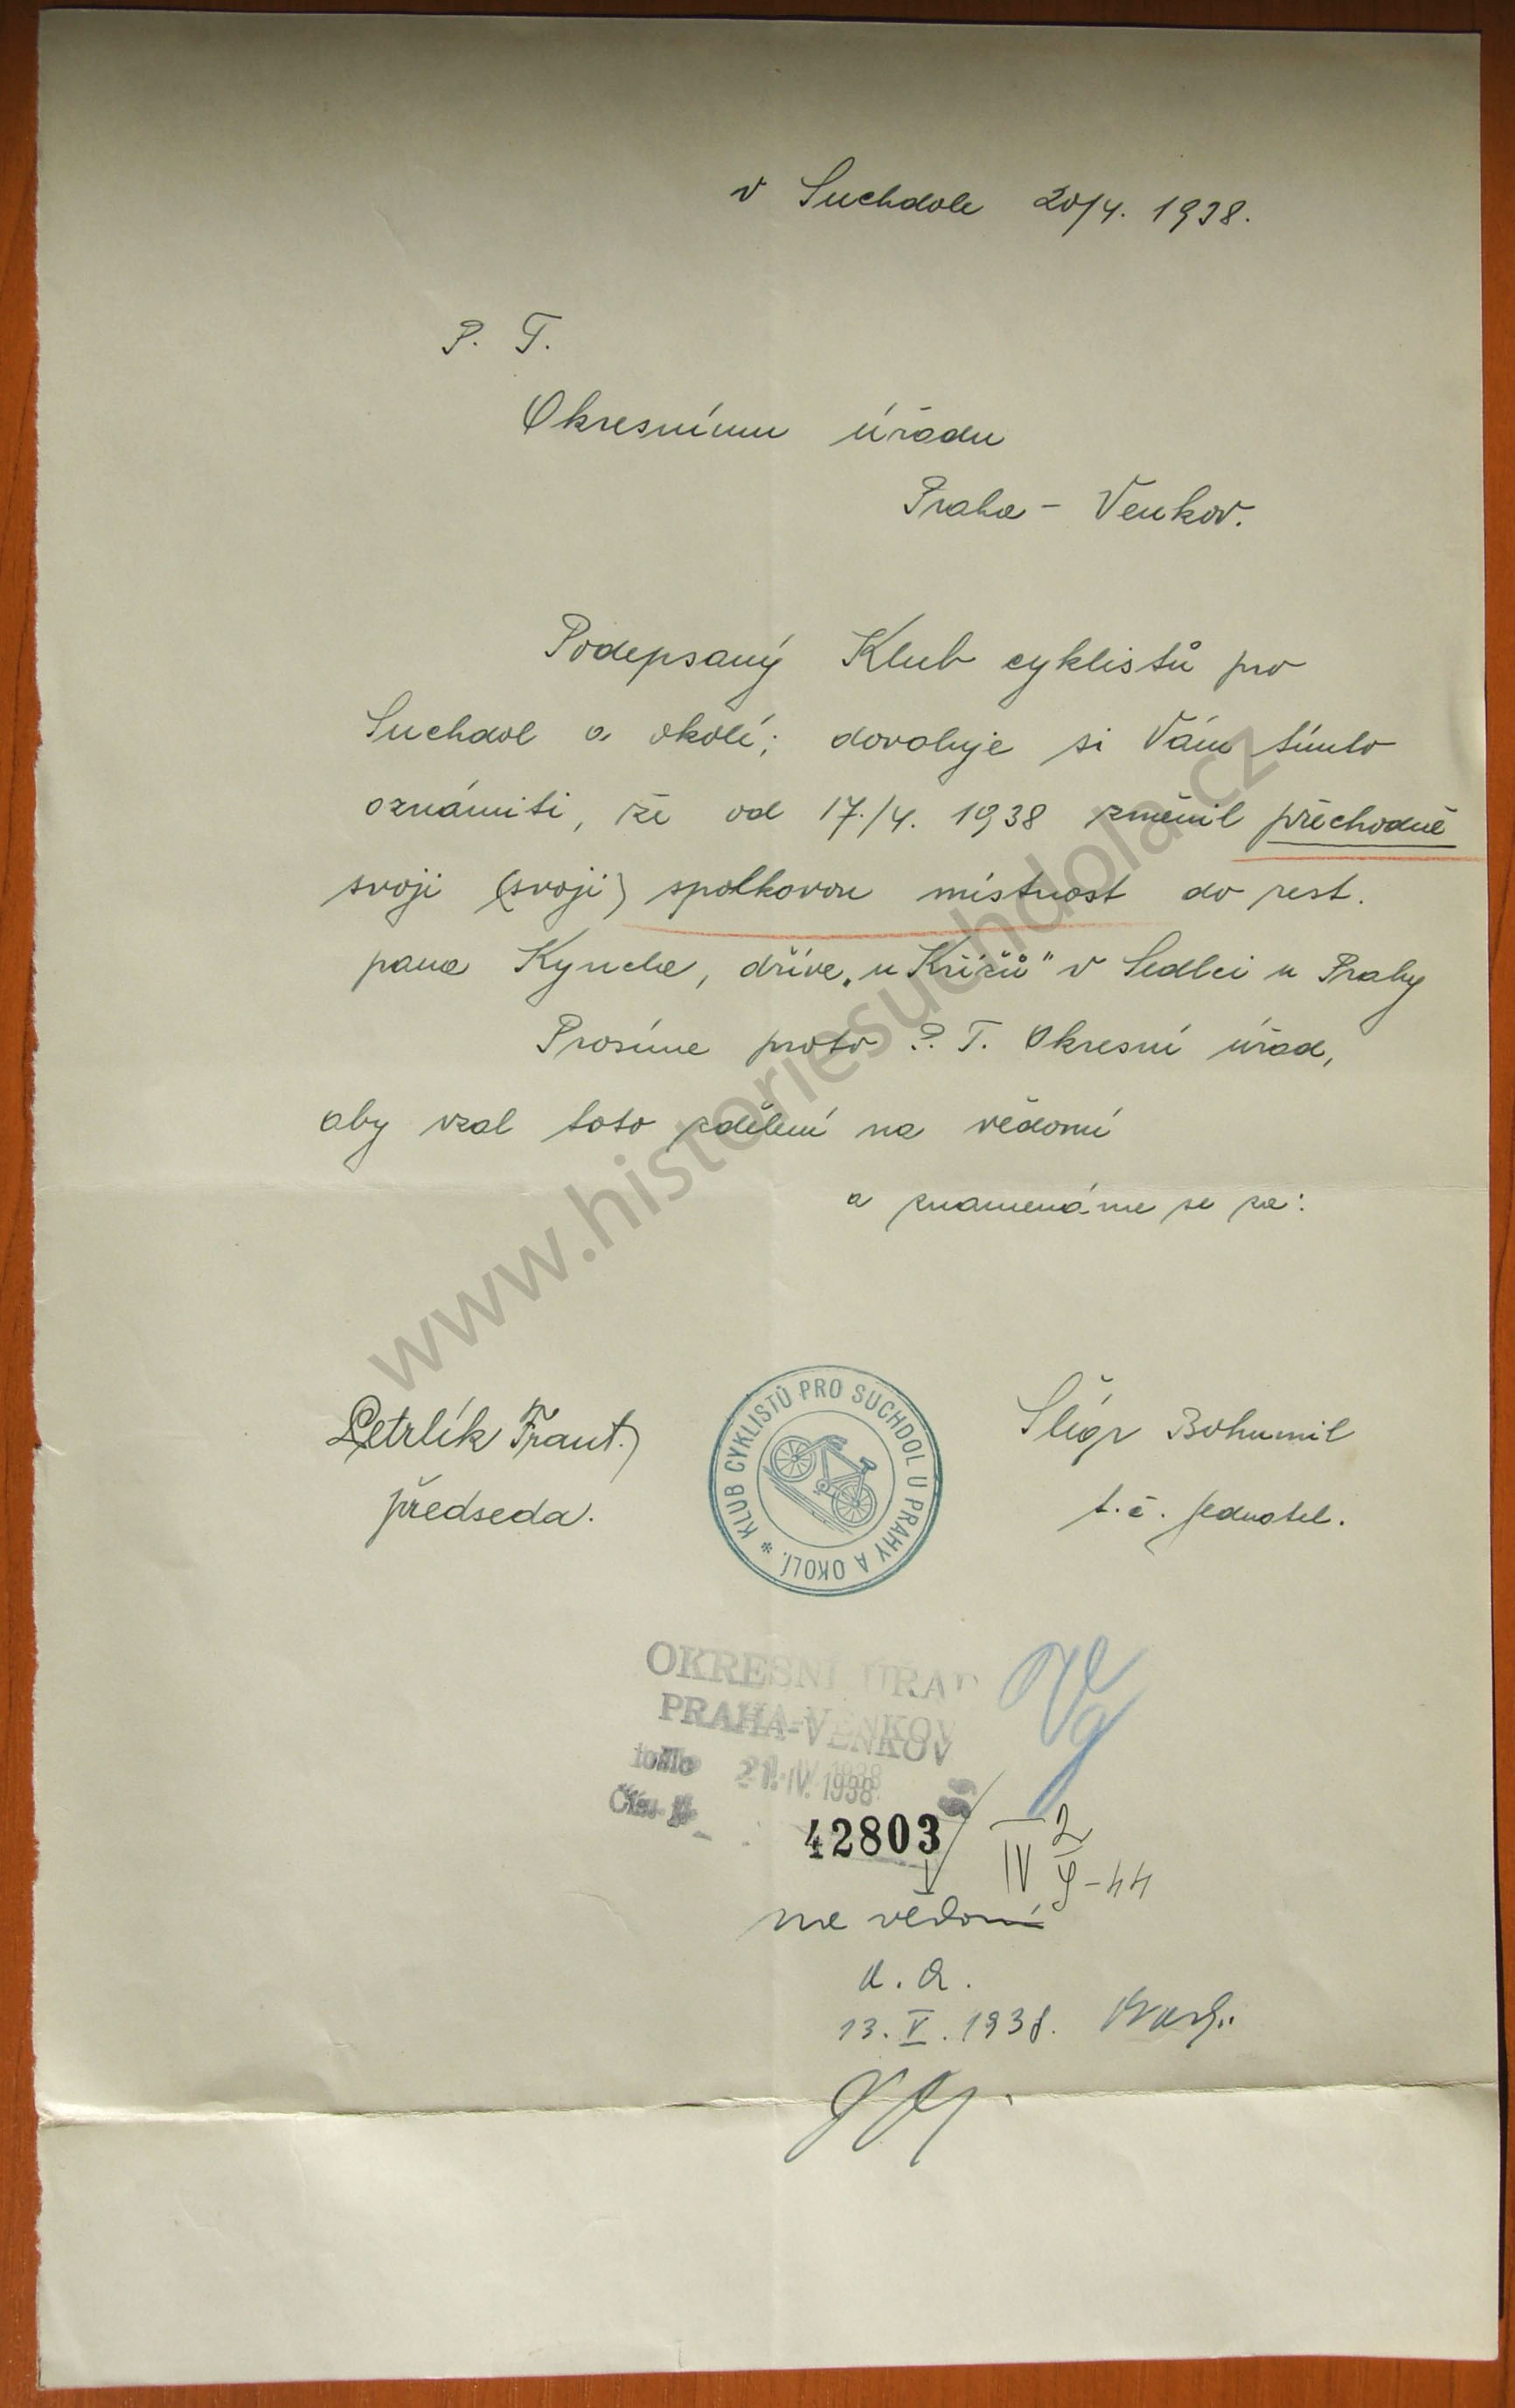 v Suchdole 20/4. 1938.
P. T.
Okresnímu úřadu
Praha - Venkov.
Podepsaný Klub cyklistů pro
Suchdol a okolí; dovoluje si Vám tímto
oznámiti, že od 17./4. 1938 změnil přechodně
svoji (svoji) spolkovou místnost do rest.
pana Kyncla, dříve „u Křížů" v Sedlci u Prahy
Prosíme proto P. T. Okresní úřad,
aby vzal toto zdělení na vědomí
a znamenáme se za:
www.historiesuchdola.cz
Petrlík Frant.
předseda.
KLUB CYKLISTŮ PRO SUCHDOL U PRAHY A OKOLÍ. *
Šlégr Bohumil
t.č. jednatel.
OKRESNÍ ÚŘAD
PRAHA-VENKOV
došlo 21. IV. 1938
42803
IV 2
9-44
na vědomí
a. a.
13. V. 1938.